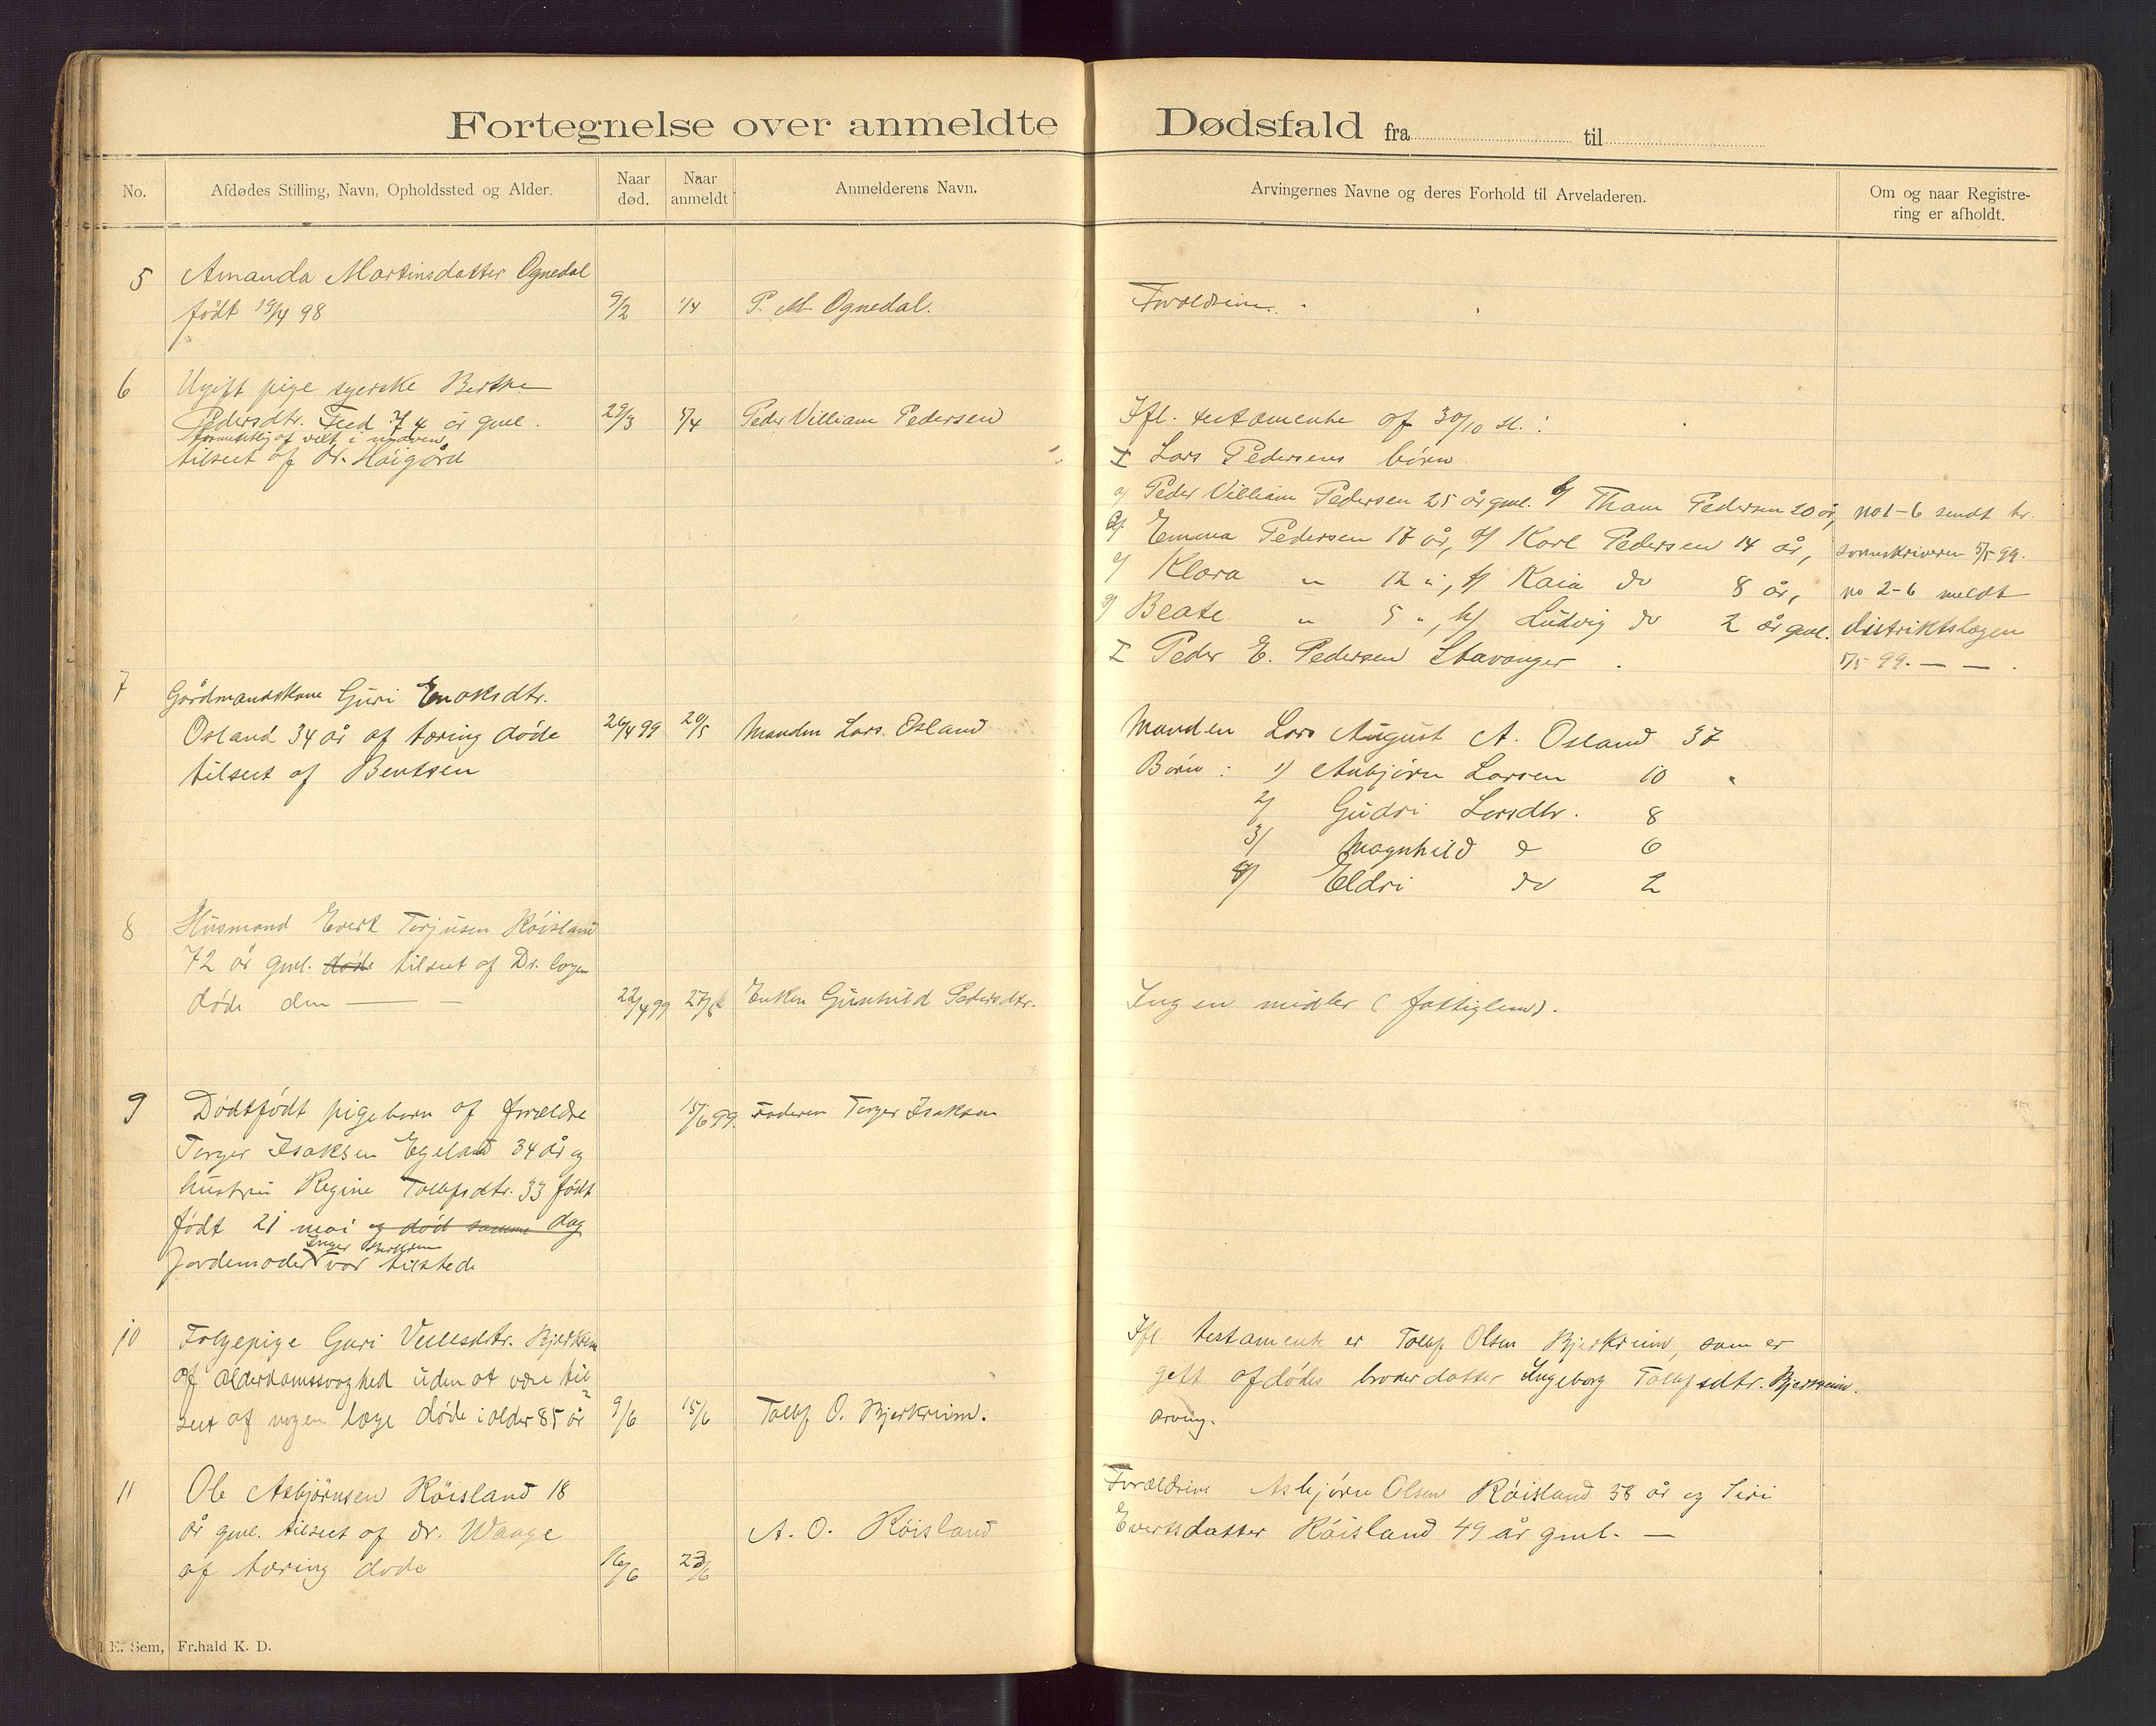 Fortegnelse over anmeldte Dødsfald fra til
No.
Afdødes Stilling, Navn, Opholdssted og Alder.
Naar død.
Naar anmeldt
Anmelderens Navn.
Arvingernes Navne og deres Forhold til Arveladeren.
Om og naar Registre-
ring er afholdt.
5 Amanda Martinsdatter Ognedal
født 19/4 98 9/2 1/4 P. M. Ognedal. Forældrene.
6 Ugift pige syerske Berthe
Pedersdtr. 74 år gml. 29/3 5/4 Peder Villiam Pedersen Ifl. testamente af 30/10 :
tilseet af Dr. Høigård
I Lars Pedersens børn
a/ Peder Villiam Pedersen 25 år gml. b/ Tham Pedersen 20 år, no 1-6 sendt hr.
c/ Emma Pedersen 17 år, d/ Karl Pedersen 14 år, sorenskriveren 5/5 99.
e/ Klara " 12 ", f/ Kaia do 8 år, no 2-6 meldt
g/ Beate " 5 ", h/ Ludvig do 2 år gml. distriktslægen
I Peder E. Pedersen Stavanger 5/5 99. — —
7 Gårdmandskone Guri Enoksdtr.
Osland 34 år af tæring døde 26/4 99 20/5 Manden Lars Osland Manden Lars August A. Osland 37
tilseet af Bentsen Børn : 1) Asbjørn Larsen 10 "
2/ Gudri Larsdtr. 8
3/ Magnhild do 6
4/ Eldri do 2
8 Husmand Evert Terjusen Røisland
72 år gml. døde tilseet af Dr. lægen
døde den — — 22/4 99 27/5 Enken Gunhild Pedersdtr. Ingen midler (fattiglem).
9 Dødtfødt pigebarn af forældre 15/6 99. Faderen Terger Isaksen
Terger Isaksen Egeland 34 år og
hustru Regine Tollefsdtr. 33 født
født 21 mai og død samme dag
Inger Bjerkrem
Jordemoder var tilstede
10 Følgepige Guri Veilesdtr. Bjerkrem Ifl. testamente er Tollef Olsen Bjerkreim, som er
af alderdomssvaghed uden at være til gift afdødes broderdatter Ingeborg Tollefsdtr. Bjerkreim.
seet af nogen læge døde i alder 85 år 9/6 15/6 Tollef O. Bjerkreim. arving.
11 Ole Asbjørnsen Røisland 18 Forældrene Asbjørn Olsen Røisland 58 år og Siri
år gml. tilseet af dr. Waage A. O. Røisland Evertsdatter Røisland 49 år gml. —
af tæring døde 16/6 23/6
E. Sem, Fr.hald K. D.